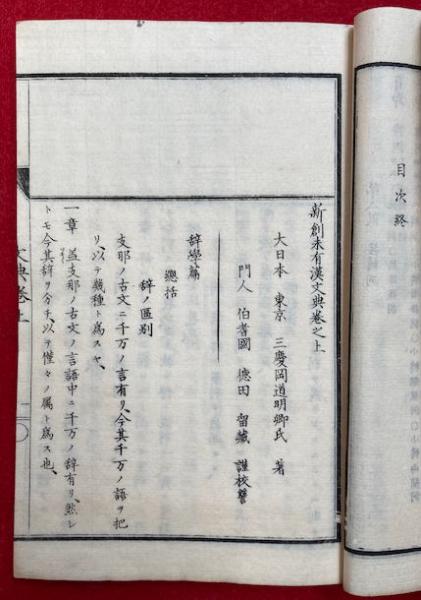 目次終
新創未有漢文典卷之上
大日本 東京 三慶岡道明卿氏 著
門人 伯耆國 德田 留藏 謹校
辞學篇
總括
辞ノ区別
支那ノ古文ニ千万ノ言有リ、今其千万ノ語ヲ把
リ、以テ幾種ト爲スヤ、
一章 蓋支那ノ古文ノ言語中ニ千万ノ辞有リ、然レ
トモ今其辞ヲ分チ、以テ僅々ノ属ト爲ス也、
文典卷上